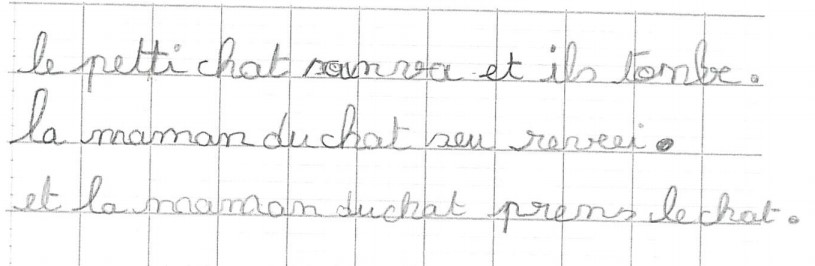 le petti chat sanva et ils tombe.
la maman du chat seu reveei.
et la maman du chat prens le chat.